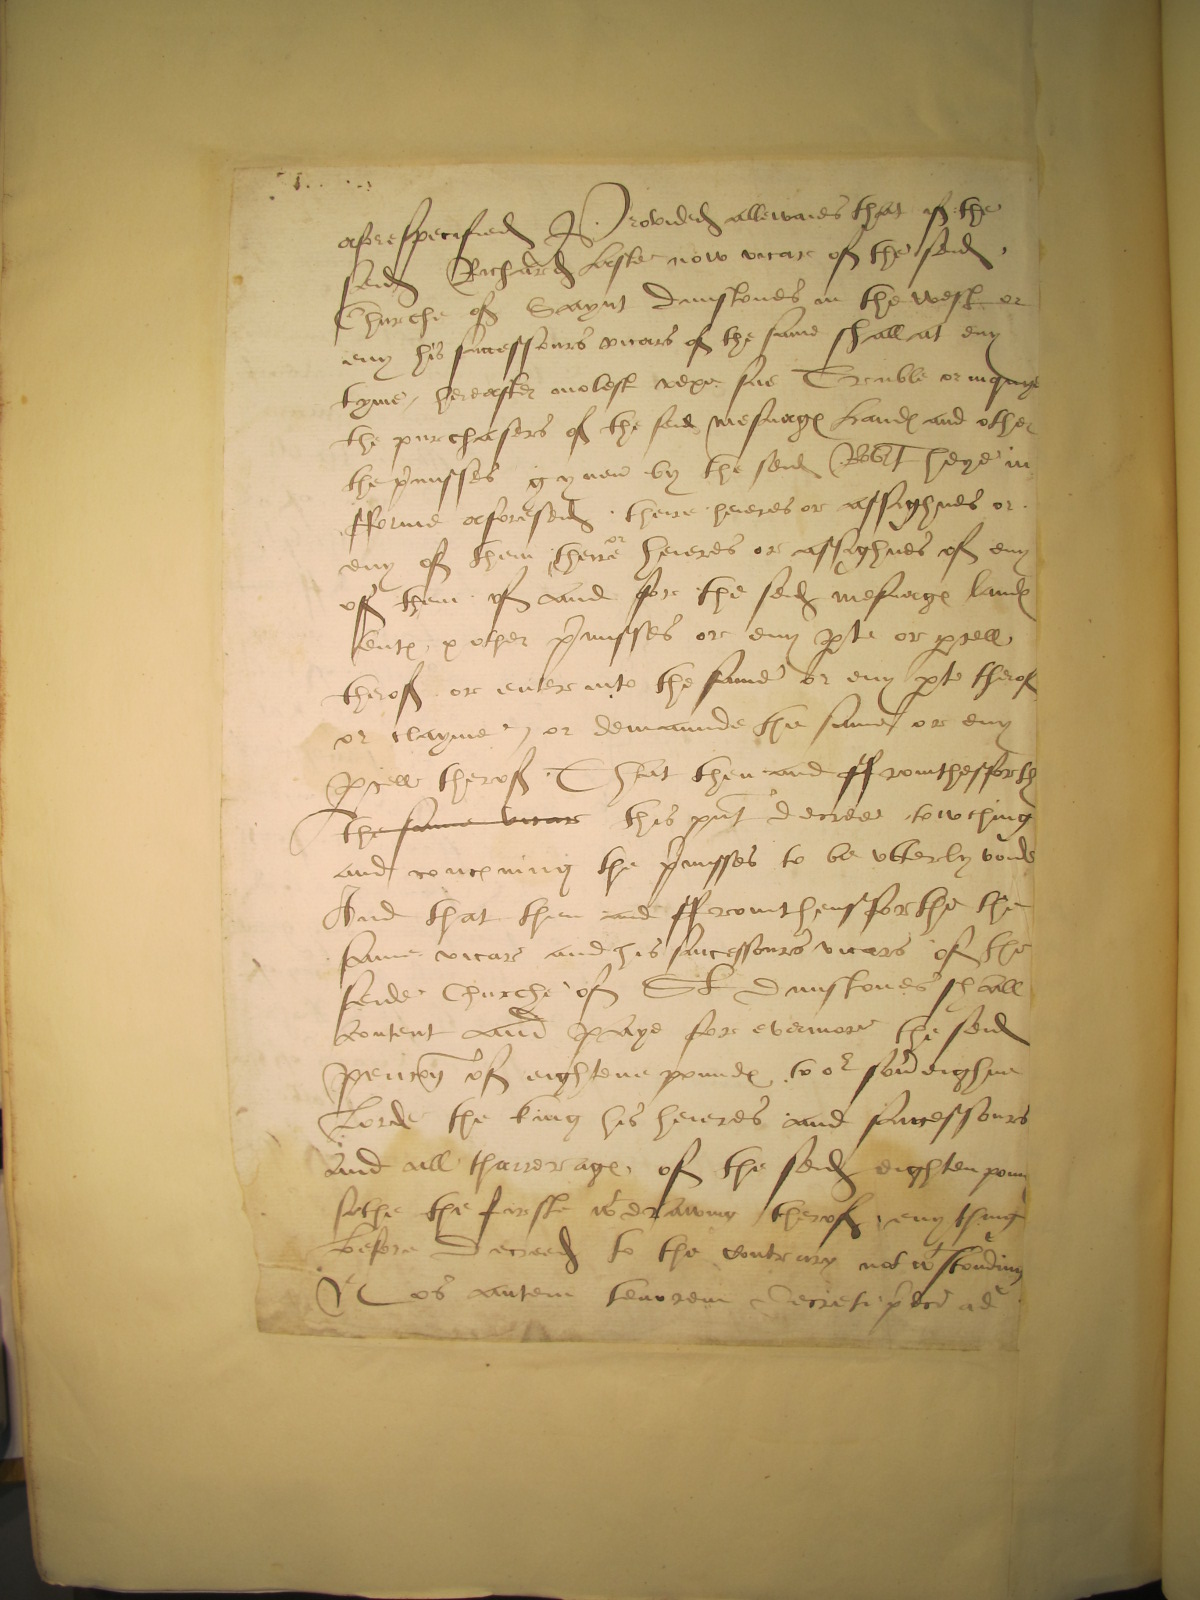 aforespecified Provided allewaies that if the
seid Richard Lyste now vicar of the seid
Churche of Saynt Dunstones in the west or
eny his successours vicars of the same shall at eny
tyme hereafter molest vexe sue Trouble or inquiet
the purchasers of the seid mesuages Landes and other
the p'misses gyven by the seid Rob't heye in
fforme aforeseid theire heieres or assighnes or
eny of them their or heieres or assighnes of eny
of them of and for the seid mesuages landes
tentes & other p'misses or eny p'te or p'cell
therof or enter into the same or eny p'te therof
or clayme, or demaunde the same or eny
p'cell therof That then and ffromthesforth
the same vicar this p'nt decree towching
and conc'ning the p'misses to be vtterly voide
And that then and ffromthensforthe the
same vicar and his successours vicars of the
seide Churche of St Dunstones shall
content and paye for evermore the seid
penc'on of eightene poundes to or sov'eighne
Lorde the king his heieres and successours
and all tharrerages of the seid eighten poun
sithe the firste wtdrawing therof eny thing
before Decreed to the contrary not wtstonding
Nos autem tenorem Decreti p'dict ad